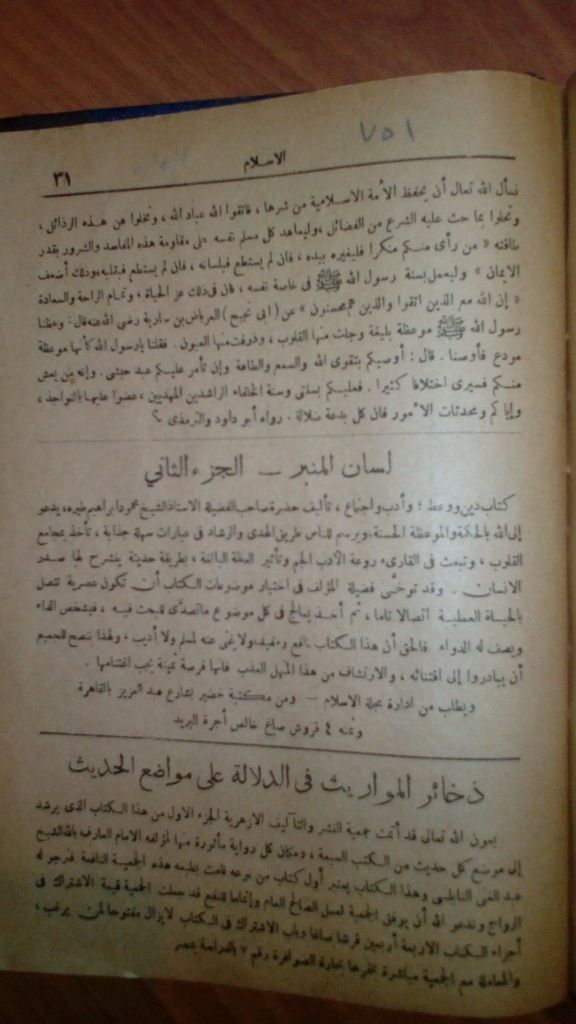 ٧٥١
الاسلام
٣١
نسأل الله تعالى أن يحفظ الأمة الاسلامية من شرها ، فاتقوا الله عباد الله ، وتخلوا عن هذه الرذائل ،
وتحلوا بما حث عليه الشرع من الفضائل ، وليعاهد كل مسلم نفسه على مقاومة هذه المفاسد والشرور بقدر
طاقته « من رأى منكم منكرا فليغيره بيده ، فان لم يستطع فبلسانه ، فان لم يستطع فبقلبه وذلك أضعف
الايمان » وليعمل بسنة رسول الله ﷺ فى خاصة نفسه ، فان فى ذلك عز الحياة ، وتمام الراحة والسعادة
« إن الله مع الذين اتقوا والذين هم محسنون » عن ( ابى نجيح ) العرباض بن سارية رضى الله عنه قال : وعظنا
رسول الله ﷺ موعظة بليغة وجلت منها القلوب ، وذرفت منها العيون . فقلنا يارسول الله كأنها موعظة
مودع فأوصنا . قال : أوصيكم بتقوى الله والسمع والطاعة وإن تأمر عليكم عبد حبشى . وإنه من يعش
منكم فسيرى اختلافا كثيرا . فعليكم بسنتى وسنة الخلفاء الراشدين المهديين ، عضوا عليها بالنواجذ ،
وإياكم ومحدثات الأمور فان كل بدعة ضلالة . رواه أبو داود والترمذى ؟
لسان المنبر — الجزء الثانى
كتاب دين ووعظ ؛ وأدب واجتماع ، تأليف حضرة صاحب الفضيلة الاستاذ الشيخ محمود ابراهيم طيره ، يدعو
إلى الله بالحكمة والموعظة الحسنة ، ويرسم للناس طريق الهدى والرشاد فى عبارات سهلة جذابة ، تأخذ بمجامع
القلوب ، وتبعث فى القارىء روعة الأدب الجم وتأثير العظة البالغة ، بطريقة حديثة ينشرح لها صدر
الانسان . وقد توخى فضيلة المؤلف فى اختيار موضوعات الكتاب أن تكون عصرية تتصل
بالحياة العملية اتصالا تاما ، ثم أخذ يعالج فى كل موضوع ماتصدى للبحث فيه ، فيشخص الداء
ويصف له الدواء فالحق أن هذا الكتاب نافع ومفيد ، ولا غنى عنه لمسلم ولا أديب ، ولهذا ننصح للجميع
أن يبادروا إلى اقتنائه ، والارتشاف من هذا المنهل العذب فانها فرصة ثمينة يجب اغتنامها .
ويطلب من ادارة مجلة الاسلام — ومن مكتبة خضير بشارع عبد العزيز بالقاهرة
وثمنه ٤ قروش صاغ خالص أجرة البريد
ذخائر المواريث فى الدلالة على مواضع الحديث
بعون الله تعالى قد أتمت جمعية النشر والتأليف الازهرية الجزء الاول من هذا الكتاب الذى يرشد
إلى موضع كل حديث من الكتب السبعة ، ومكان كل رواية مأثورة منها لمؤلفه الامام العارف بالله الشيخ
عبد الغنى النابلسى وهذا الكتاب يعتبر أول كتاب من نوعه قامت بطبعه هذه الجمعية النافعة فنرجو له
الرواج وندعو الله أن يوفق الجمعية لعمل الصالح العام وإتماما للنفع قد جعلت الجمعية قيمة الاشتراك فى
أجزاء الكتاب الاربعة أربعين قرشا صاغا وباب الاشتراك فى الكتاب لايزال مفتوحا لمن يرغب ،
والمعاملة مع الجمعية مباشرة بمقرها بحارة الصوافرة رقم ٧ بالدراسة بمصر